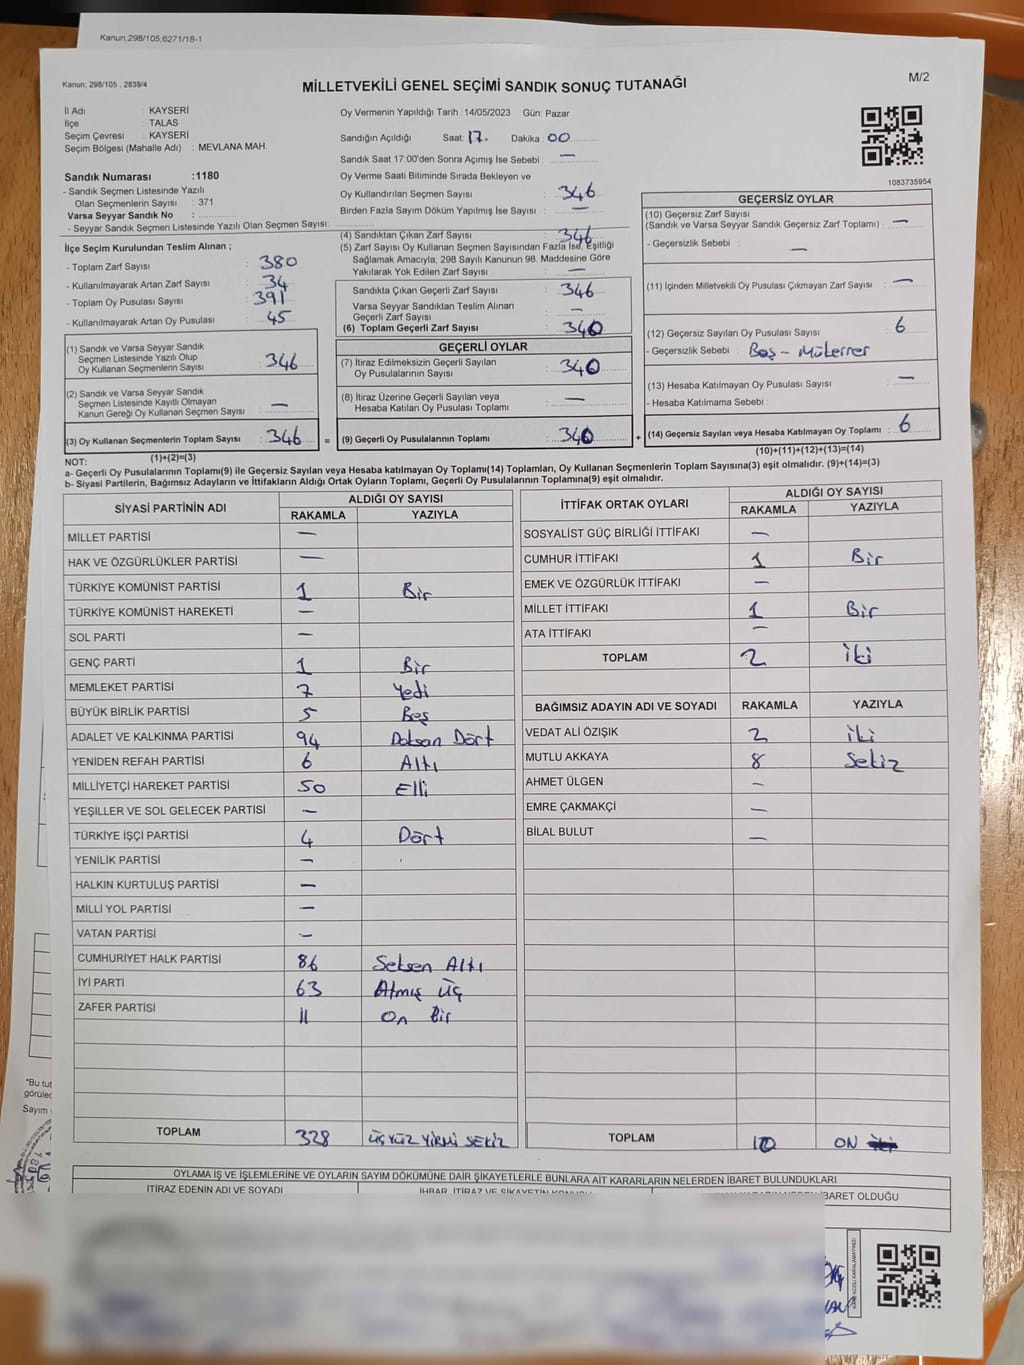 Kanun;298/105,6271/18-1
Kanun; 298/105 , 2839/4
MİLLETVEKİLİ GENEL SEÇİMİ SANDIK SONUÇ TUTANAĞI
M/2
İl Adı : KAYSERİ
İlçe : TALAS
Seçim Çevresi : KAYSERİ
Seçim Bölgesi (Mahalle Adı) : MEVLANA MAH.
Sandık Numarası :1180
- Sandık Seçmen Listesinde Yazılı
Olan Seçmenlerin Sayısı : 371
Varsa Seyyar Sandık No :
- Seyyar Sandık Seçmen Listesinde Yazılı Olan Seçmen Sayısı:
Oy Vermenin Yapıldığı Tarih :14/05/2023 Gün: Pazar
Sandığın Açıldığı Saat: 17. Dakika : 00
Sandık Saat 17:00'den Sonra Açımış İse Sebebi : —
Oy Verme Saati Bitiminde Sırada Bekleyen ve
Oy Kullandırılan Seçmen Sayısı : 346
Birden Fazla Sayım Döküm Yapılmış İse Sayısı : —
1083735954
İlçe Seçim Kurulundan Teslim Alınan ;
- Toplam Zarf Sayısı : 380
- Kullanılmayarak Artan Zarf Sayısı : 34
- Toplam Oy Pusulası Sayısı : 391
- Kullanılmayarak Artan Oy Pusulası : 45
(1) Sandık ve Varsa Seyyar Sandık
Seçmen Listesinde Yazılı Olup
Oy Kullanan Seçmenlerin Sayısı : 346
(2) Sandık ve Varsa Seyyar Sandık
Seçmen Listesinde Kayıtlı Olmayan
Kanun Gereği Oy Kullanan Seçmen Sayısı : —
(3) Oy Kullanan Seçmenlerin Toplam Sayısı : 346 =
(1)+(2)=(3)
(4) Sandıktan Çıkan Zarf Sayısı : 346
(5) Zarf Sayısı Oy Kullanan Seçmen Sayısından Fazla İse, Eşitliği
Sağlamak Amacıyla; 298 Sayılı Kanunun 98. Maddesine Göre
Yakılarak Yok Edilen Zarf Sayısı : —
Sandıkta Çıkan Geçerli Zarf Sayısı : 346
Varsa Seyyar Sandıktan Teslim Alınan
Geçerli Zarf Sayısı : —
(6) Toplam Geçerli Zarf Sayısı : 340
GEÇERLİ OYLAR
(7) İtiraz Edilmeksizin Geçerli Sayılan
Oy Pusulalarının Sayısı : 340
(8) İtiraz Üzerine Geçerli Sayılan veya
Hesaba Katılan Oy Pusulası Toplamı : —
(9) Geçerli Oy Pusulalarının Toplamı : 340 +
GEÇERSİZ OYLAR
(10) Geçersiz Zarf Sayısı
(Sandık ve Varsa Seyyar Sandık Geçersiz Zarf Toplamı) : —
- Geçersizlik Sebebi : —
(11) İçinden Milletvekili Oy Pusulası Çıkmayan Zarf Sayısı : —
(12) Geçersiz Sayılan Oy Pusulası Sayısı : 6
- Geçersizlik Sebebi : Boş - Mükerrer
(13) Hesaba Katılmayan Oy Pusulası Sayısı : —
- Hesaba Katılmama Sebebi :
(14) Geçersiz Sayılan veya Hesaba Katılmayan Oy Toplamı : 6
(10)+(11)+(12)+(13)=(14)
NOT:
a- Geçerli Oy Pusulalarının Toplamı(9) ile Geçersiz Sayılan veya Hesaba katılmayan Oy Toplamı(14) Toplamları, Oy Kullanan Seçmenlerin Toplam Sayısına(3) eşit olmalıdır. (9)+(14)=(3)
b- Siyasi Partilerin, Bağımsız Adayların ve İttifakların Aldığı Ortak Oyların Toplamı, Geçerli Oy Pusulalarının Toplamına(9) eşit olmalıdır.
SİYASİ PARTİNİN ADI ALDIĞI OY SAYISI
RAKAMLA YAZIYLA
MİLLET PARTİSİ —
HAK VE ÖZGÜRLÜKLER PARTİSİ —
TÜRKİYE KOMÜNİST PARTİSİ 1 Bir
TÜRKİYE KOMÜNİST HAREKETİ —
SOL PARTİ —
GENÇ PARTİ 1 Bir
MEMLEKET PARTİSİ 7 Yedi
BÜYÜK BİRLİK PARTİSİ 5 Beş
ADALET VE KALKINMA PARTİSİ 94 Doksan Dört
YENİDEN REFAH PARTİSİ 6 Altı
MİLLİYETÇİ HAREKET PARTİSİ 50 Elli
YEŞİLLER VE SOL GELECEK PARTİSİ —
TÜRKİYE İŞÇİ PARTİSİ 4 Dört
YENİLİK PARTİSİ —
HALKIN KURTULUŞ PARTİSİ —
MİLLİ YOL PARTİSİ —
VATAN PARTİSİ —
CUMHURİYET HALK PARTİSİ 86 Seksen Altı
İYİ PARTİ 63 Atmış üç
ZAFER PARTİSİ 11 On Bir
TOPLAM 328 ÜÇYÜZ YİRMİ SEKİZ
İTTİFAK ORTAK OYLARI ALDIĞI OY SAYISI
RAKAMLA YAZIYLA
SOSYALİST GÜÇ BİRLİĞİ İTTİFAKI —
CUMHUR İTTİFAKI 1 Bir
EMEK VE ÖZGÜRLÜK İTTİFAKI —
MİLLET İTTİFAKI 1 Bir
ATA İTTİFAKI —
TOPLAM 2 iki
BAĞIMSIZ ADAYIN ADI VE SOYADI RAKAMLA YAZIYLA
VEDAT ALİ ÖZIŞIK 2 iki
MUTLU AKKAYA 8 Sekiz
AHMET ÜLGEN —
EMRE ÇAKMAKÇİ —
BİLAL BULUT —
TOPLAM 10 ON
OYLAMA İŞ VE İŞLEMLERİNE VE OYLARIN SAYIM DÖKÜMÜNE DAİR ŞİKAYETLERLE BUNLARA AİT KARARLARIN NELERDEN İBARET BULUNDUKLARI
İTİRAZ EDENİN ADI VE SOYADI
İHBAR, İTİRAZ VE ŞİKAYETİN KONUSU
İBARET OLDUĞU
*Bu tut
görülec
Sayım